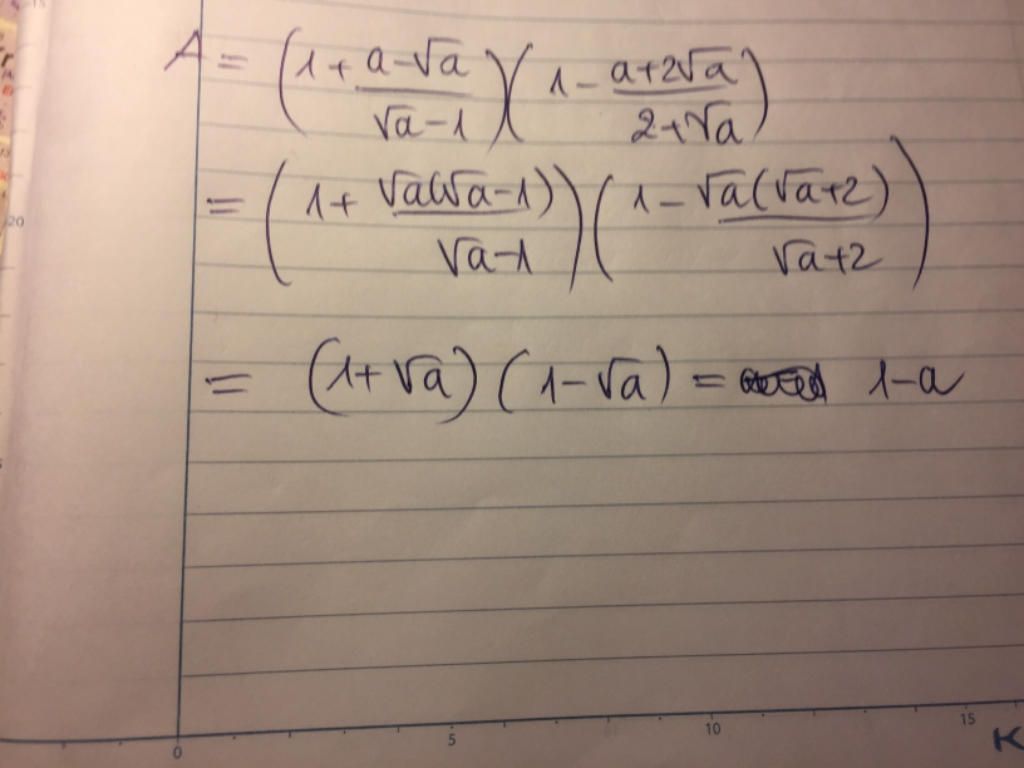 A = (1 + (a-√a)/(√a-1)) (1 - (a+2√a)/(2+√a))
= (1 + √a(√a-1)/(√a-1)) (1 - √a(√a+2)/(√a+2))
= (1+√a) (1-√a) = 1-a
20
0 5 10 15
K